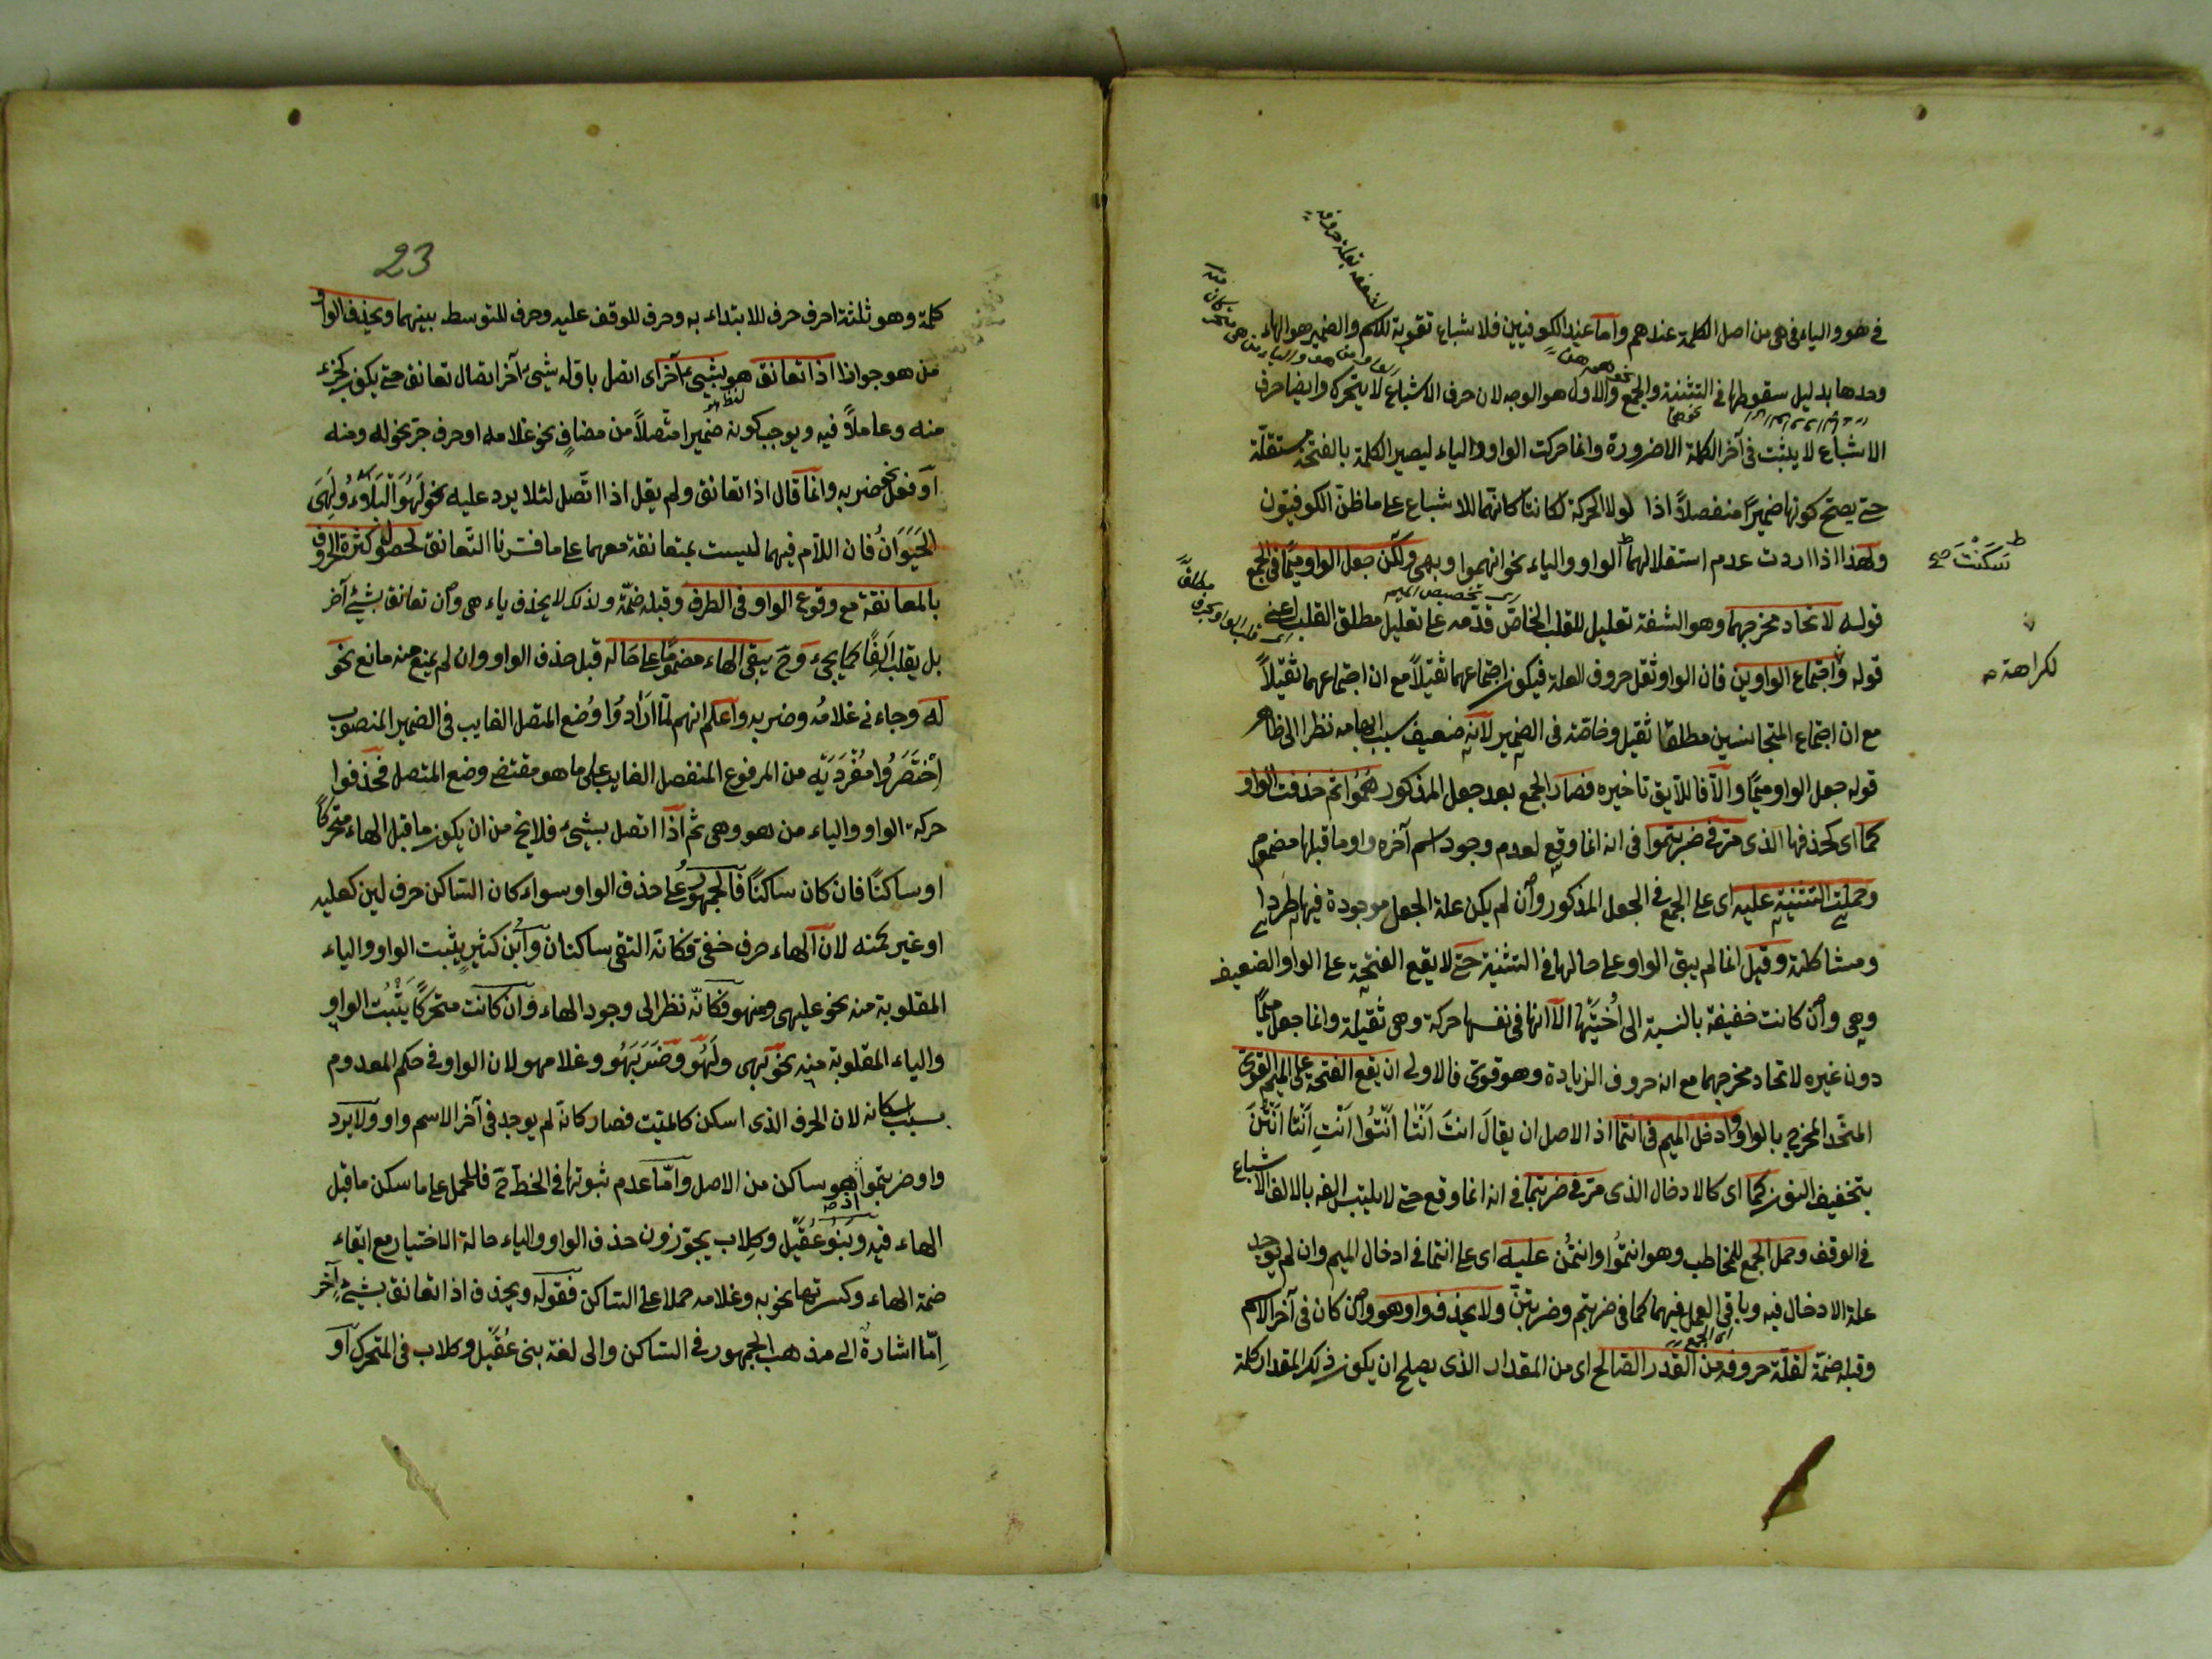 في هو والياء في هي من اصل الكلمة عندهم واما عند الكوفيين فلاشباع تقوية للكلم والضمير هو الهاء
وحدها بدليل سقوطها في التثنية والجمع والاول هو الوجه لان حرف الاشباع لا يتحرك وايضا حرف
الاشباع لا يثبت في آخر الكلمة الا ضرورة وانما حركت الواو والياء ليصير الكلمة بالفتحة مستقلة
حتى يصح كونها ضميرًا منفصلاً اذا لولا الحركة لكانتا كانهما للاشباع على ما ظن الكوفيون
ولهذا اذا اردت عدم استقلالهما الواو والياء نحو انهموا وبهي ولكن جعل الواو ميمًا في الجمع
قوله لاتحاد مخرجهما وهو الشفة تعليل للقلب الخاص قدمه على تعليل مطلق القلب اعني
قوله واجتماع الواوين فان الواو ثقل حروف العلة فيكون اجتماعهما ثقيلاً مع ان اجتماعهما ثقيلاً
مع ان اجتماع المتجانسين مطلقا ثقيل وخاصة في الضمير لانه ضعيف بسبب ابهامه نظرا الى ظاهر
قوله جعل الواو ميمًا والا فاللايق تاخيره فصار الجمع بعد جعل المذكور هُمُوا ثم حذفت الواو
كما اى كحذفها الذى مر في ضربتموا في انه انما وقع لعدم وجود اسم آخره واو ما قبلها مضموم
وحملت التثنية عليه اى على الجمع في الجعل المذكور وان لم يكن علة الجعل موجودة فيها طردا
ومشاكلة وقيل انما لم يبق الواو على حالها في التثنية حتى لا يقع الفتحة على الواو الضعيف
وهي وان كانت خفيفة بالنسبة الى اُختيها الا انها في نفسها حركة وهي ثقيلة وانما جعل ميمًا
دون غيره لاتحاد مخرجهما مع انه حروف الزيادة وهو قوي فالاولى ان يقع الفتحة على الميم القوي
المتحد المخرج بالواو وادخل الميم في انتما اذ الاصل ان يقالَ انتَ اَنْتَا اَنْتُوا اَنْتِ اَنْتَا اَنْتُنَّ
بتخفيف النون كما اى كالادخال الذى مر في ضربتما في انه انما وقع حتى لا يلتبس الفه بالالف الاشباع
في الوقف وحمل الجمع للمخاطب وهو انتمُوا وانتُن عليه اى على انتما في ادخال الميم وان لم يوجد
علة الادخال فيه وباقي العمل فيهما كما في ضربتم وضربتن ولا يحذف واو هو وان كان في آخر الاسم
وقبله ضمة لقلة حروفه من القدر الصالح اى من المقدار الذى يصلح ان يكون ذلك المقدار كلمة
سكنت صح
لكراهة صح
23
كلمة وهو ثلثة احرف حرف للابتداء به وحرف للوقف عليه وحرف للتوسط بينهما ويحذف الواو
من هو جوازا اذا تعانق هو بشيءٍ آخر اى اتصل باوله شيءٌ آخر اتصال تعانق حتى يكون كجزء
منه وعاملاً فيه ويوجب كونه ضميرا متصلاً من مضافٍ نحو غلامه او حرف جر نحو له ومنه
او فعل نحو ضربه وانما قال اذا تعانق ولم يقل اذا اتصل لئلا يرد عليه نحو لَهُوَ اَلْبَلَاءُ ولَهِىَ
الحَيَوَانُ فان اللام فيهما ليست بمتعانقة معهما على ما فسرنا التعانق لحصول كثرة الحروف
بالمعانقة مع وقوع الواو في الطرف وقبله ضمة ولذلك لا يحذف ياء هي وان تعانق بشيء آخر
بل يقلب اَلِفًا كما يجيء وح يبقى الهاء مضمومًا على حاله قبل حذف الواو وان لم يمنع منه مانع نحو
له وجاءني غلامُه وضربه واعلم انهم لما اَرَادُوا وُضع المتصل الغايب في الضمير المنصوب
اِخْتَصَرُوا مُفْرَدَيْه من المرفوع المنفصل الغايب على ما هو مقتضى وضع المتصل فحذفوا
حركة الواو والياء من هو وهي ثم اذا اتصل بشيء فلا يخ من ان يكون ما قبل الهاء متحركًا
او ساكنًا فان كان ساكنًا فالجمهورُ على حذف الواو سواء كان الساكن حرف لين كعليه
او غير كمنه لان الهاء حرف خفي فكانه التقى ساكنان وابن كثيرٍ يثبت الواو والياء
المقلوبة منه نحو عليهي ومنهو فكانه نظر الى وجود الهاء وان كانت متحركًا يَثْبُت الواو
والياء المقلوبة منه نحو بهي ولَهُو وضَرَبَهُو وغلامهو لان الواو في حكم المعدوم
بسبب اسكانه لان الحرف الذى اسكن كالميت فصار كانه لم يوجد في آخر الاسم واو ولا يرد
واو ضربتموا اذ هو ساكن من الاصل واما عدم ثبوتها في الخط ح فللحمل على ما سكن ما قبل
الهاء فيه وبَنُو عُقَيْل وكِلاب يجوزون حذف الواو والياء حالة الاختيار مع ابقاء
ضمة الهاء وكسرتها نحو به وغلامه حملا على الساكن فقوله ويحذف اذا تعانق بشيءٍ آخر
اِمّا اشارةٌ الى مذهب الجمهور في الساكن والى لغة بني عُقَيْل وكلاب في المتحرك او